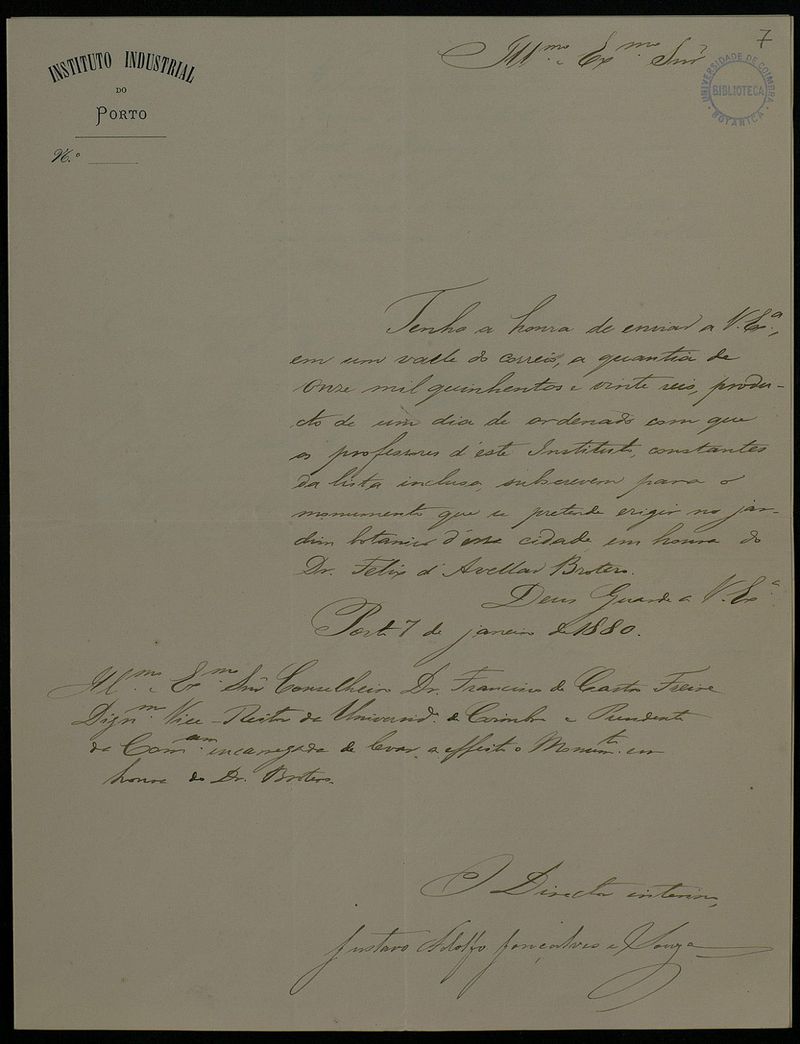 7
INSTITUTO INDUSTRIAL
DO
PORTO
N.º
UNIVERSIDADE DE COIMBRA
BIBLIOTECA
BOTANICA
Ill.mo e Ex.mo Snr
Tenho a honra de enviar a V. Ex.a,
em um valle do correio, a quantia de
onze mil quinhentos e vinte reis, produ-
cto de um dia de ordenado com que
os professores d'este Instituto, constantes
da lista inclusa, subscrevem para o
monumento que se pretende erigir no jar-
dim botanico d'essa cidade em honra do
Dr. Felix d'Avellar Brotero.
Deus Guarde a V. Ex.a
Porto 7 de janeiro de 1880.
Ill.mo e Ex.mo Snr Conselheiro Dr. Francisco de Castro Freire
Dign.mo Vice-Reitor da Universid.e de Coimbra e Presidente
da Com.am encarregada de levar a effeito o Monum.to em
honra do Dr. Brotero.
O Director interino,
Gustavo Adolfo Gonçalves e Souza